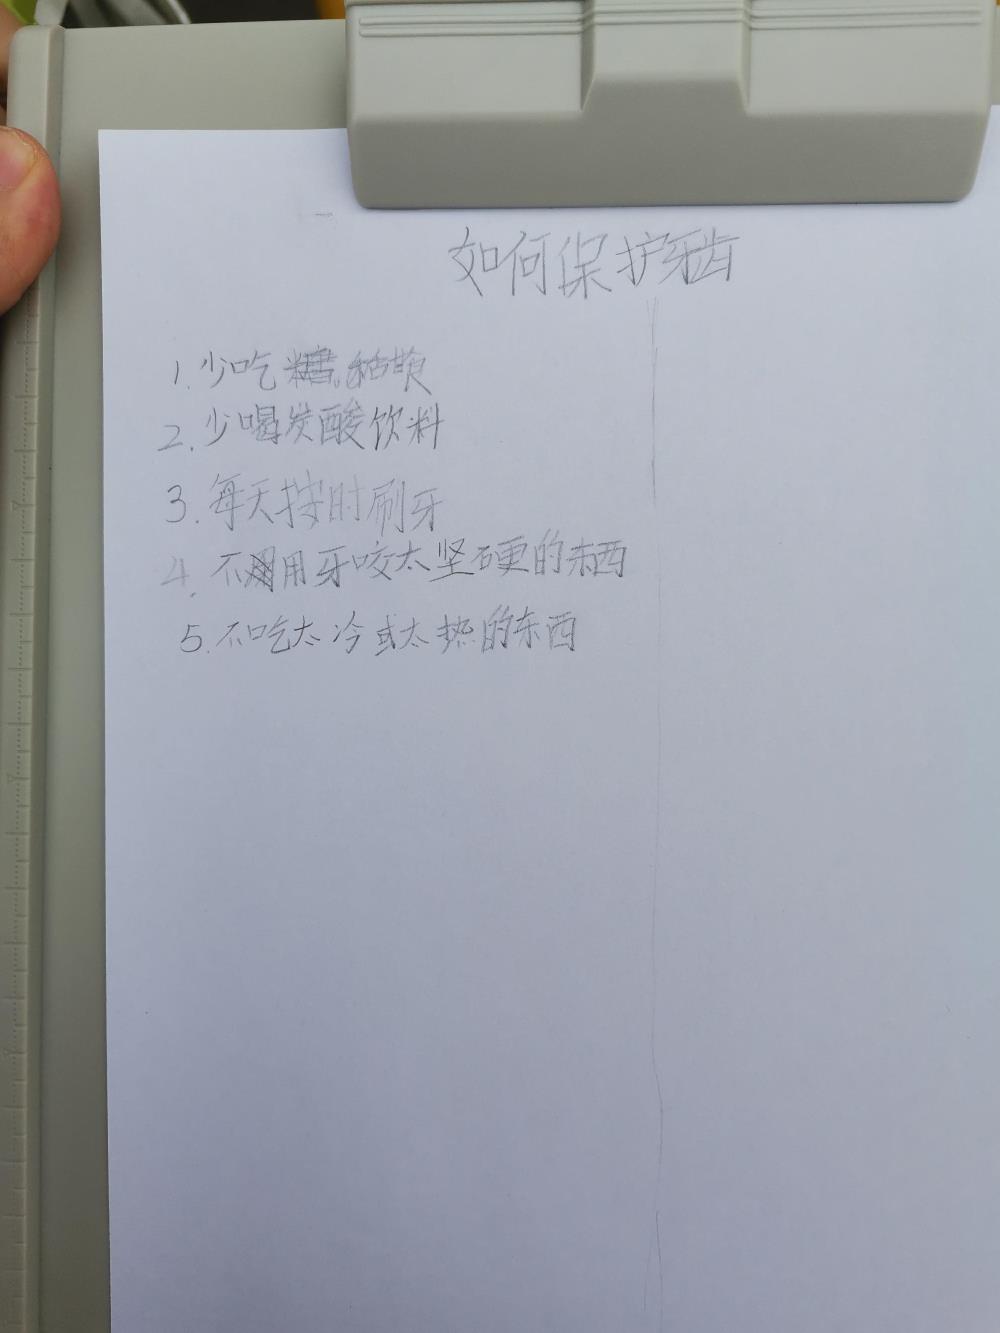 如何保护牙齿
1.少吃糖
2.少喝炭酸饮料
3.每天按时刷牙
4.不用牙咬太坚硬的东西
5.不吃太冷或太热的东西